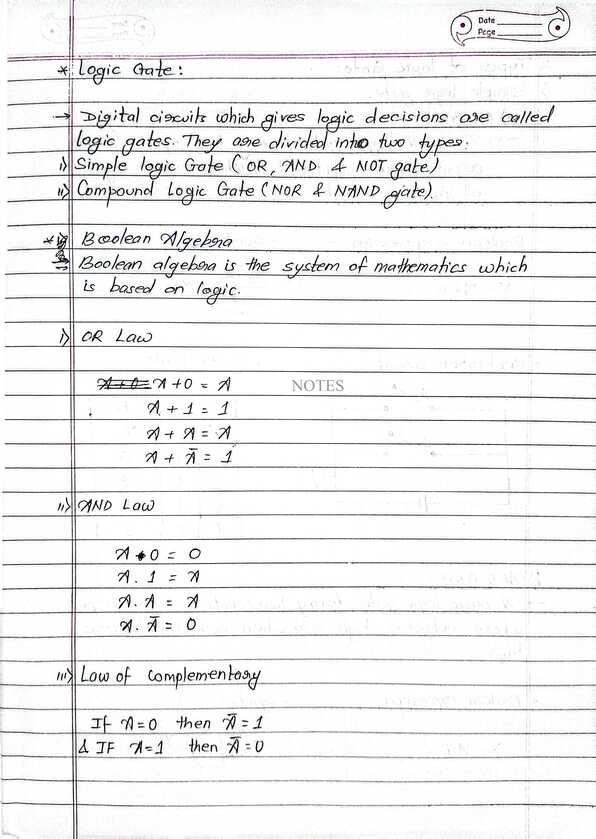 Date
Page
* Logic Gate:
→ Digital circuits which gives logic decisions are called
logic gates. They are divided into two types:
i) Simple logic Gate (OR, AND & NOT gate)
ii) Compound Logic Gate (NOR & NAND gate).
* Boolean Algebra
Boolean algebra is the system of mathematics which
is based on logic.
i) OR Law
A+0 = A+0 = A
NOTES
A + 1 = 1
A + A = A
A + Ā = 1
ii) AND Law
A . 0 = 0
A . 1 = A
A . A = A
A . Ā = 0
iii) Law of Complementary
If A=0 then Ā=1
& IF A=1 then Ā=0